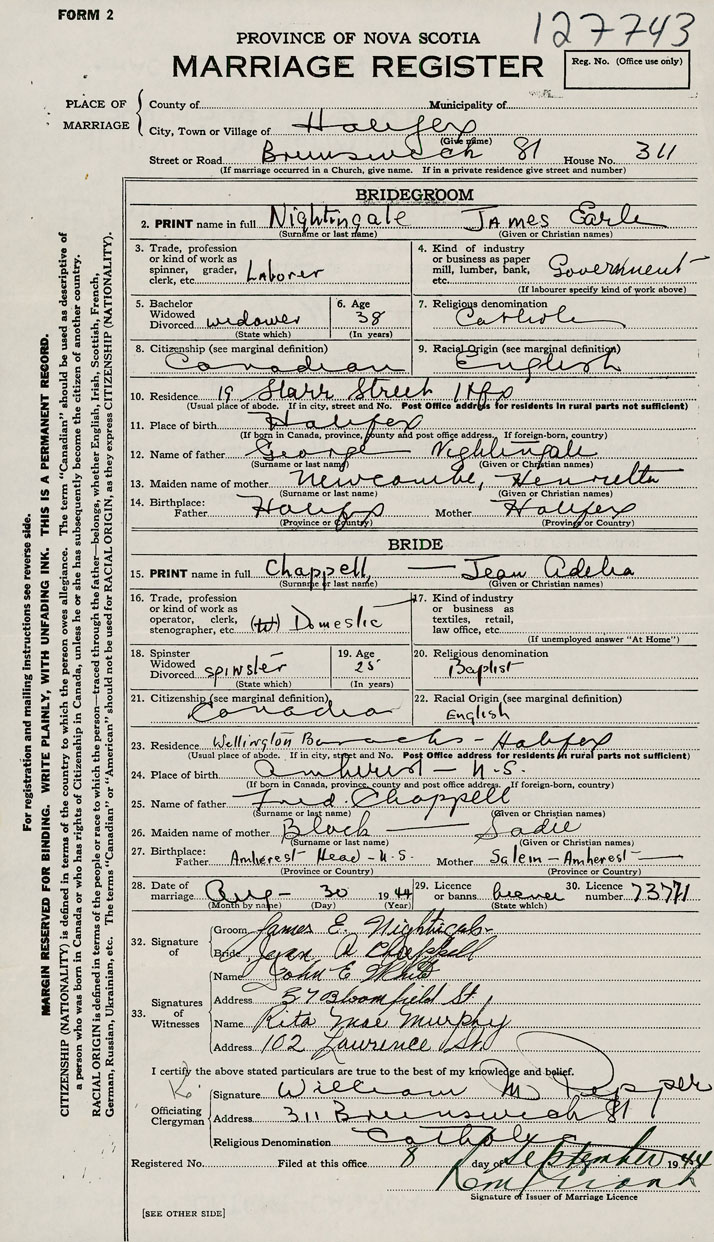 FORM 2
127743
PROVINCE OF NOVA SCOTIA
MARRIAGE REGISTER
Reg. No. (Office use only)
PLACE OF MARRIAGE
County of Municipality of
City, Town or Village of Halifax
(Give name)
Street or Road Brunswick St House No. 311
(If marriage occurred in a Church, give name. If in a private residence give street and number)
BRIDEGROOM
2. PRINT name in full Nightingale James Earle
(Surname or last name) (Given or Christian names)
3. Trade, profession or kind of work as spinner, grader, clerk, etc. Laborer
4. Kind of industry or business as paper mill, lumber, bank, etc. Government
(If labourer specify kind of work above)
5. Bachelor Widowed Divorced widower
(State which)
6. Age 38
(In years)
7. Religious denomination Catholic
8. Citizenship (see marginal definition) Canadian
9. Racial Origin (see marginal definition) English
10. Residence 19 Starr Street Hfx
(Usual place of abode. If in city, street and No. Post Office address for residents in rural parts not sufficient)
11. Place of birth Halifax
(If born in Canada, province, county and post office address. If foreign-born, country)
12. Name of father George Nightingale
(Surname or last name) (Given or Christian names)
13. Maiden name of mother Newcombe, Henrietta
(Surname or last name) (Given or Christian names)
14. Birthplace: Father Halifax Mother Halifax
(Province or Country) (Province or Country)
BRIDE
15. PRINT name in full Chappell, — Jean Adelia
(Surname or last name) (Given or Christian names)
16. Trade, profession or kind of work as operator, clerk, stenographer, etc. Domestic
17. Kind of industry or business as textiles, retail, law office, etc.
(If unemployed answer "At Home")
18. Spinster Widowed Divorced spinster
(State which)
19. Age 25
(In years)
20. Religious denomination Baptist
21. Citizenship (see marginal definition) Canadian
22. Racial Origin (see marginal definition) English
23. Residence Wellington Barracks - Halifax
(Usual place of abode. If in city, street and No. Post Office address for residents in rural parts not sufficient)
24. Place of birth Amherst - N.S.
(If born in Canada, province, county and post office address. If foreign-born, country)
25. Name of father Fred. Chappell
(Surname or last name) (Given or Christian names)
26. Maiden name of mother Block — Sadie
(Surname or last name) (Given or Christian names)
27. Birthplace: Father Amherest Head - N.S. Mother Salem - Amherest
(Province or Country) (Province or Country)
28. Date of marriage Aug - 30 1944
(Month by name) (Day) (Year)
29. Licence or banns licence
(State which)
30. Licence number 73771
32. Signature of
Groom James E. Nightingale
Bride Jean A Chappell
33. Signatures of Witnesses
Name John E White
Address 57 Bloomfield St.
Name Rita Mae Murphy
Address 102 Lawrence St.
I certify the above stated particulars are true to the best of my knowledge and belief.
Officiating Clergyman
Signature William M Pepper
Address 311 Brunswick St
Religious Denomination Catholic
Registered No. Filed at this office 8 day of September 1944
Signature of Issuer of Marriage Licence
[SEE OTHER SIDE]
For registration and mailing instructions see reverse side.
MARGIN RESERVED FOR BINDING. WRITE PLAINLY, WITH UNFADING INK. THIS IS A PERMANENT RECORD.
CITIZENSHIP (NATIONALITY) is defined in terms of the country to which the person owes allegiance. The term "Canadian" should be used as descriptive of
a person who was born in Canada or who has rights of Citizenship in Canada, unless he or she has subsequently become the citizen of another country.
RACIAL ORIGIN is defined in terms of the people or race to which the person—traced through the father—belongs, whether English, Irish, Scottish, French,
German, Russian, Ukrainian, etc. The terms "Canadian" or "American" should not be used for RACIAL ORIGIN, as they express CITIZENSHIP (NATIONALITY).